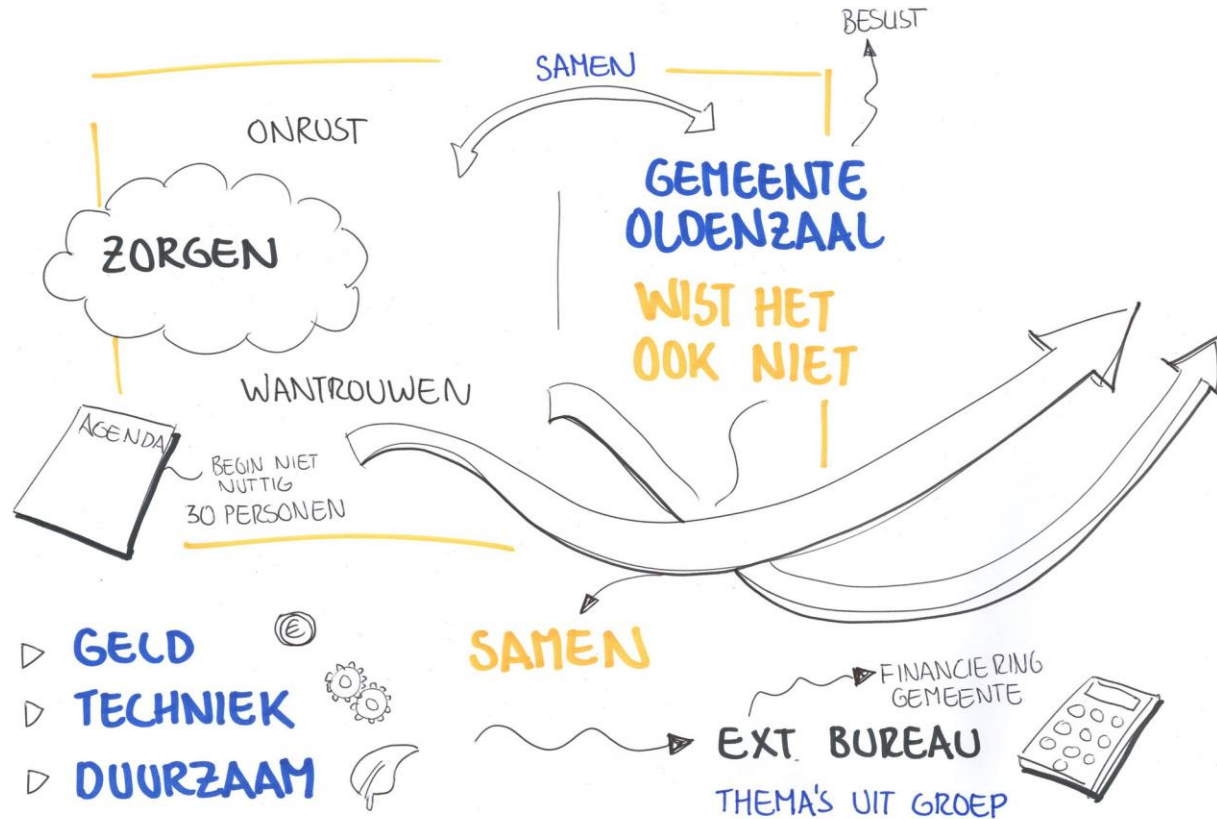 BESLIST
SAMEN
ONRUST
GEMEENTE
OLDENZAAL
ZORGEN
WIST HET
OOK NIET
WANTROUWEN
AGENDA
BEGIN NIET
NUTTIG
30 PERSONEN
SAMEN
€
GELD
TECHNIEK
DUURZAAM
FINANCIERING
GEMEENTE
EXT. BUREAU
THEMA'S UIT GROEP